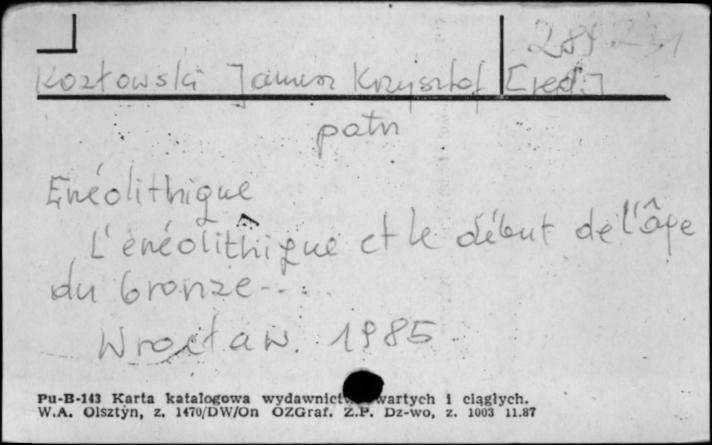 Kozłowski Janusz Krzysztof [red.]
patrz
Enéolithique
L'énéolithique et le début de l'âge
du bronze...
Wrocław 1985
Pu-B-143 Karta katalogowa wydawnictw zwartych i ciągłych.
W.A. Olsztyn, z. 1470/DW/On OZGraf. Z.P. Dz-wo, z. 1003 11.87